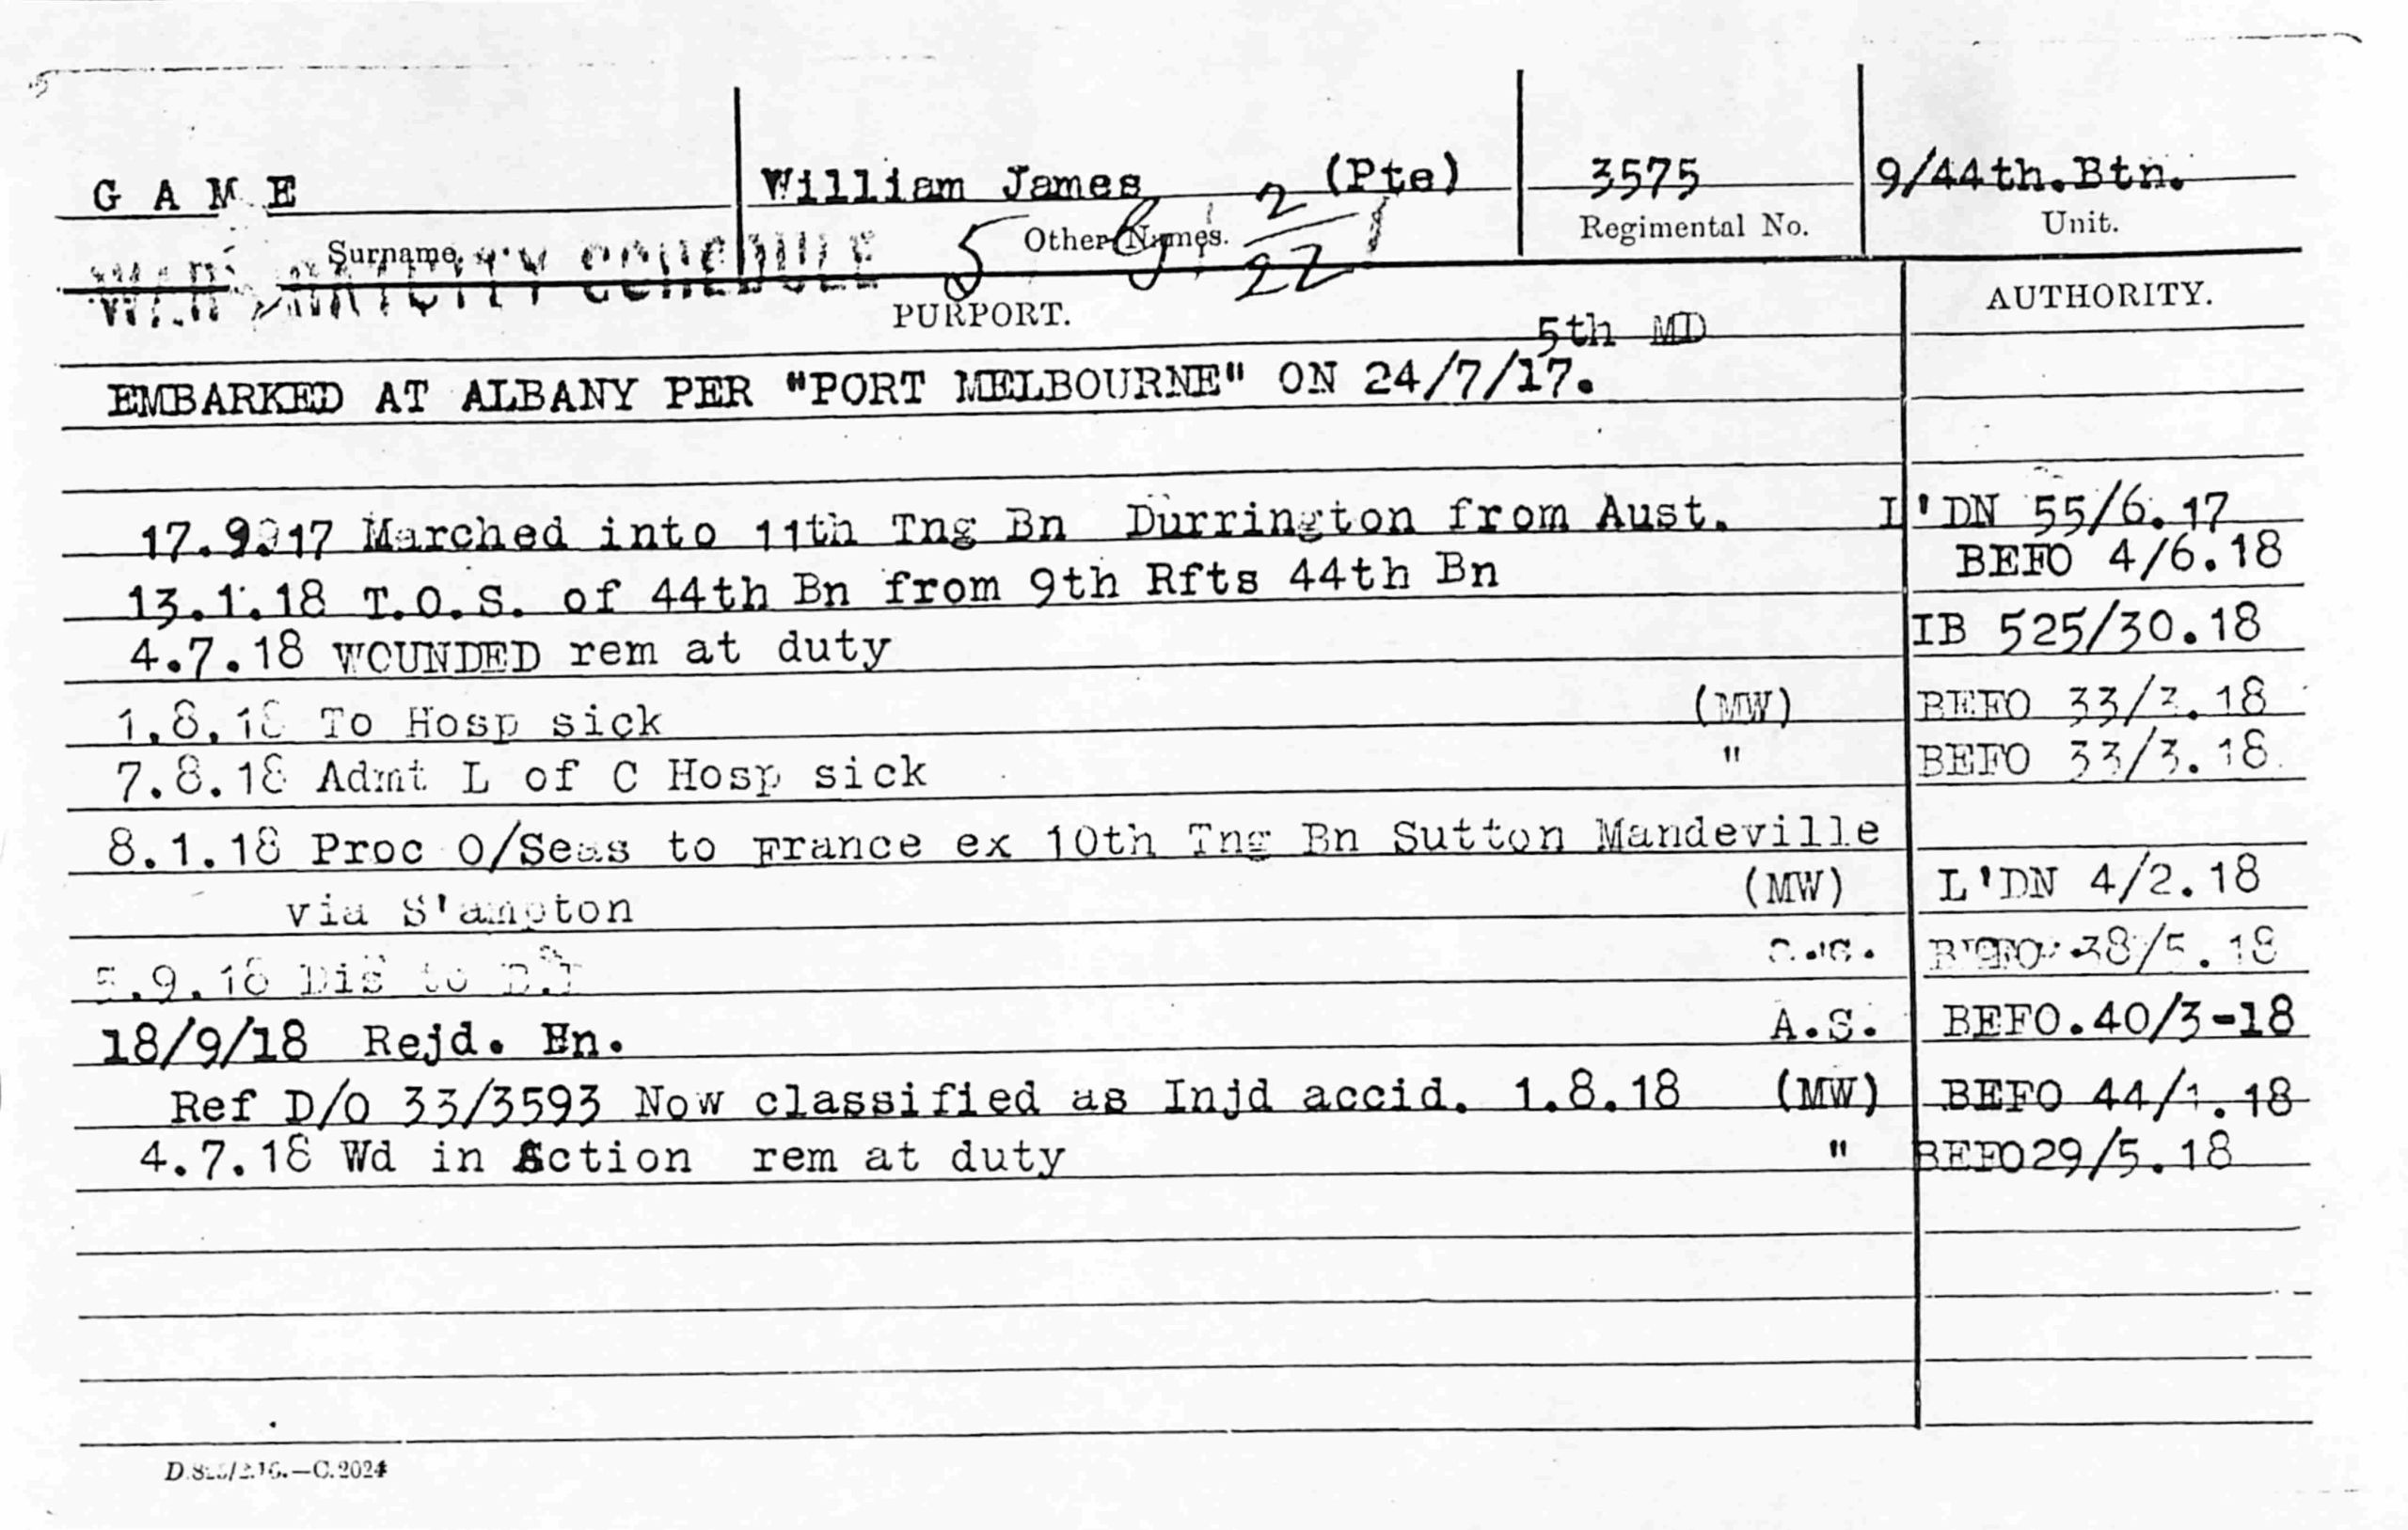 G A M E William James (Pte) 3575 9/44th.Btn.
Surname Other Names. 2/22 Regimental No. Unit.
WAR GRATUITY SCHEDULE 5
PURPORT. AUTHORITY.
5th MD
EMBARKED AT ALBANY PER "PORT MELBOURNE" ON 24/7/17.
17.9.17 Marched into 11th Tng Bn Durrington from Aust. L'DN 55/6.17
13.1.18 T.O.S. of 44th Bn from 9th Rfts 44th Bn BEFO 4/6.18
4.7.18 WOUNDED rem at duty IB 525/30.18
1.8.18 To Hosp sick (MW) BEFO 33/3.18
7.8.18 Admt L of C Hosp sick " BEFO 33/3.18.
8.1.18 Proc O/Seas to France ex 10th Tng Bn Sutton Mandeville
via S'ampton (MW) L'DN 4/2.18
5.9.18 Dis to BEFO 38/5.18
18/9/18 Rejd. Bn. A.S. BEFO.40/3-18
Ref D/O 33/3593 Now classified as Injd accid. 1.8.18 (MW) BEFO 44/1.18
4.7.18 Wd in Action rem at duty " BEFO29/5.18
C.2024